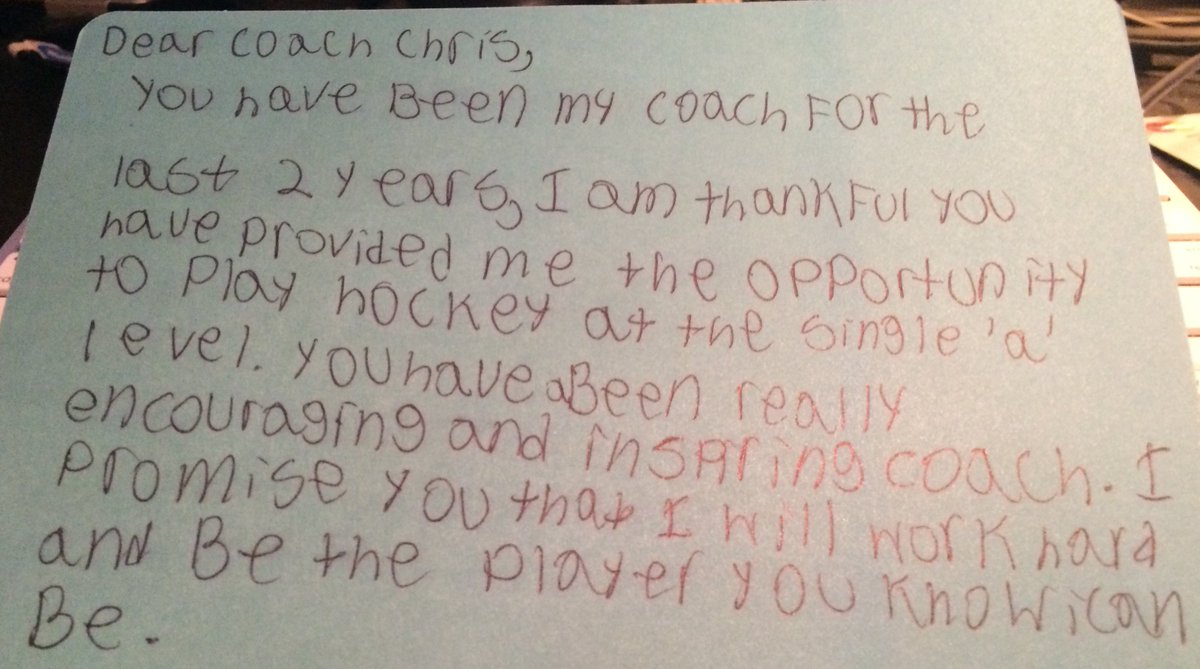 Dear coach chris,
You have Been my coach For the
last 2 years, I am thankFul you
have provided me the opportunity
to play hockey at the single 'a'
level. you have a Been really
encouraging and inspring coach. I
promise you that I will work hard
and Be the player you know i can
Be.